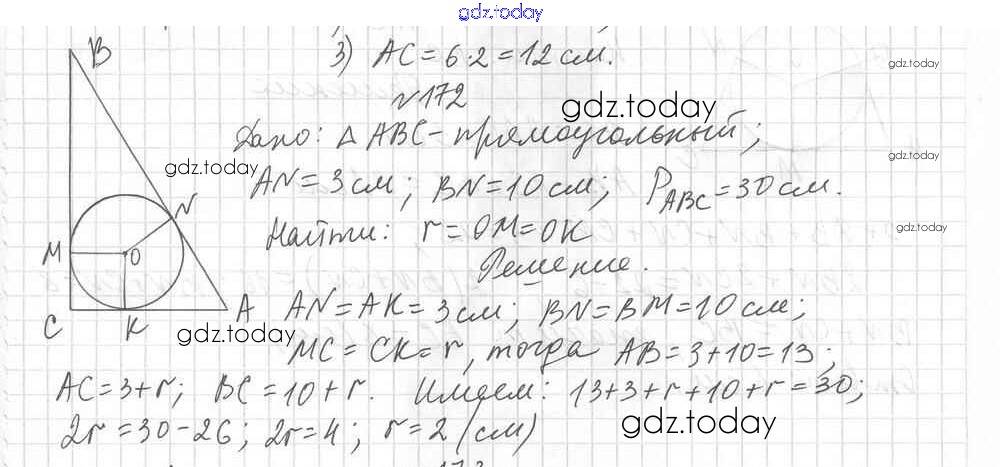 gdz.today
3) AC = 6·2 = 12 см.
gdz.today
№172
gdz.today
Дано: Δ ABC - прямоугольный;
gdz.today
gdz.today
AN = 3 см; BN = 10 см; P_ABC = 30 см.
Найти: r = OM = OK
gdz.today
Решение.
B
N
M
O
C
K
A
AN = AK = 3 см; BN = BM = 10 см;
gdz.today
MC = CK = r, тогда AB = 3 + 10 = 13;
AC = 3 + r; BC = 10 + r. Имеем: 13 + 3 + r + 10 + r = 30;
2r = 30 - 26; 2r = 4; r = 2 (см)
gdz.today